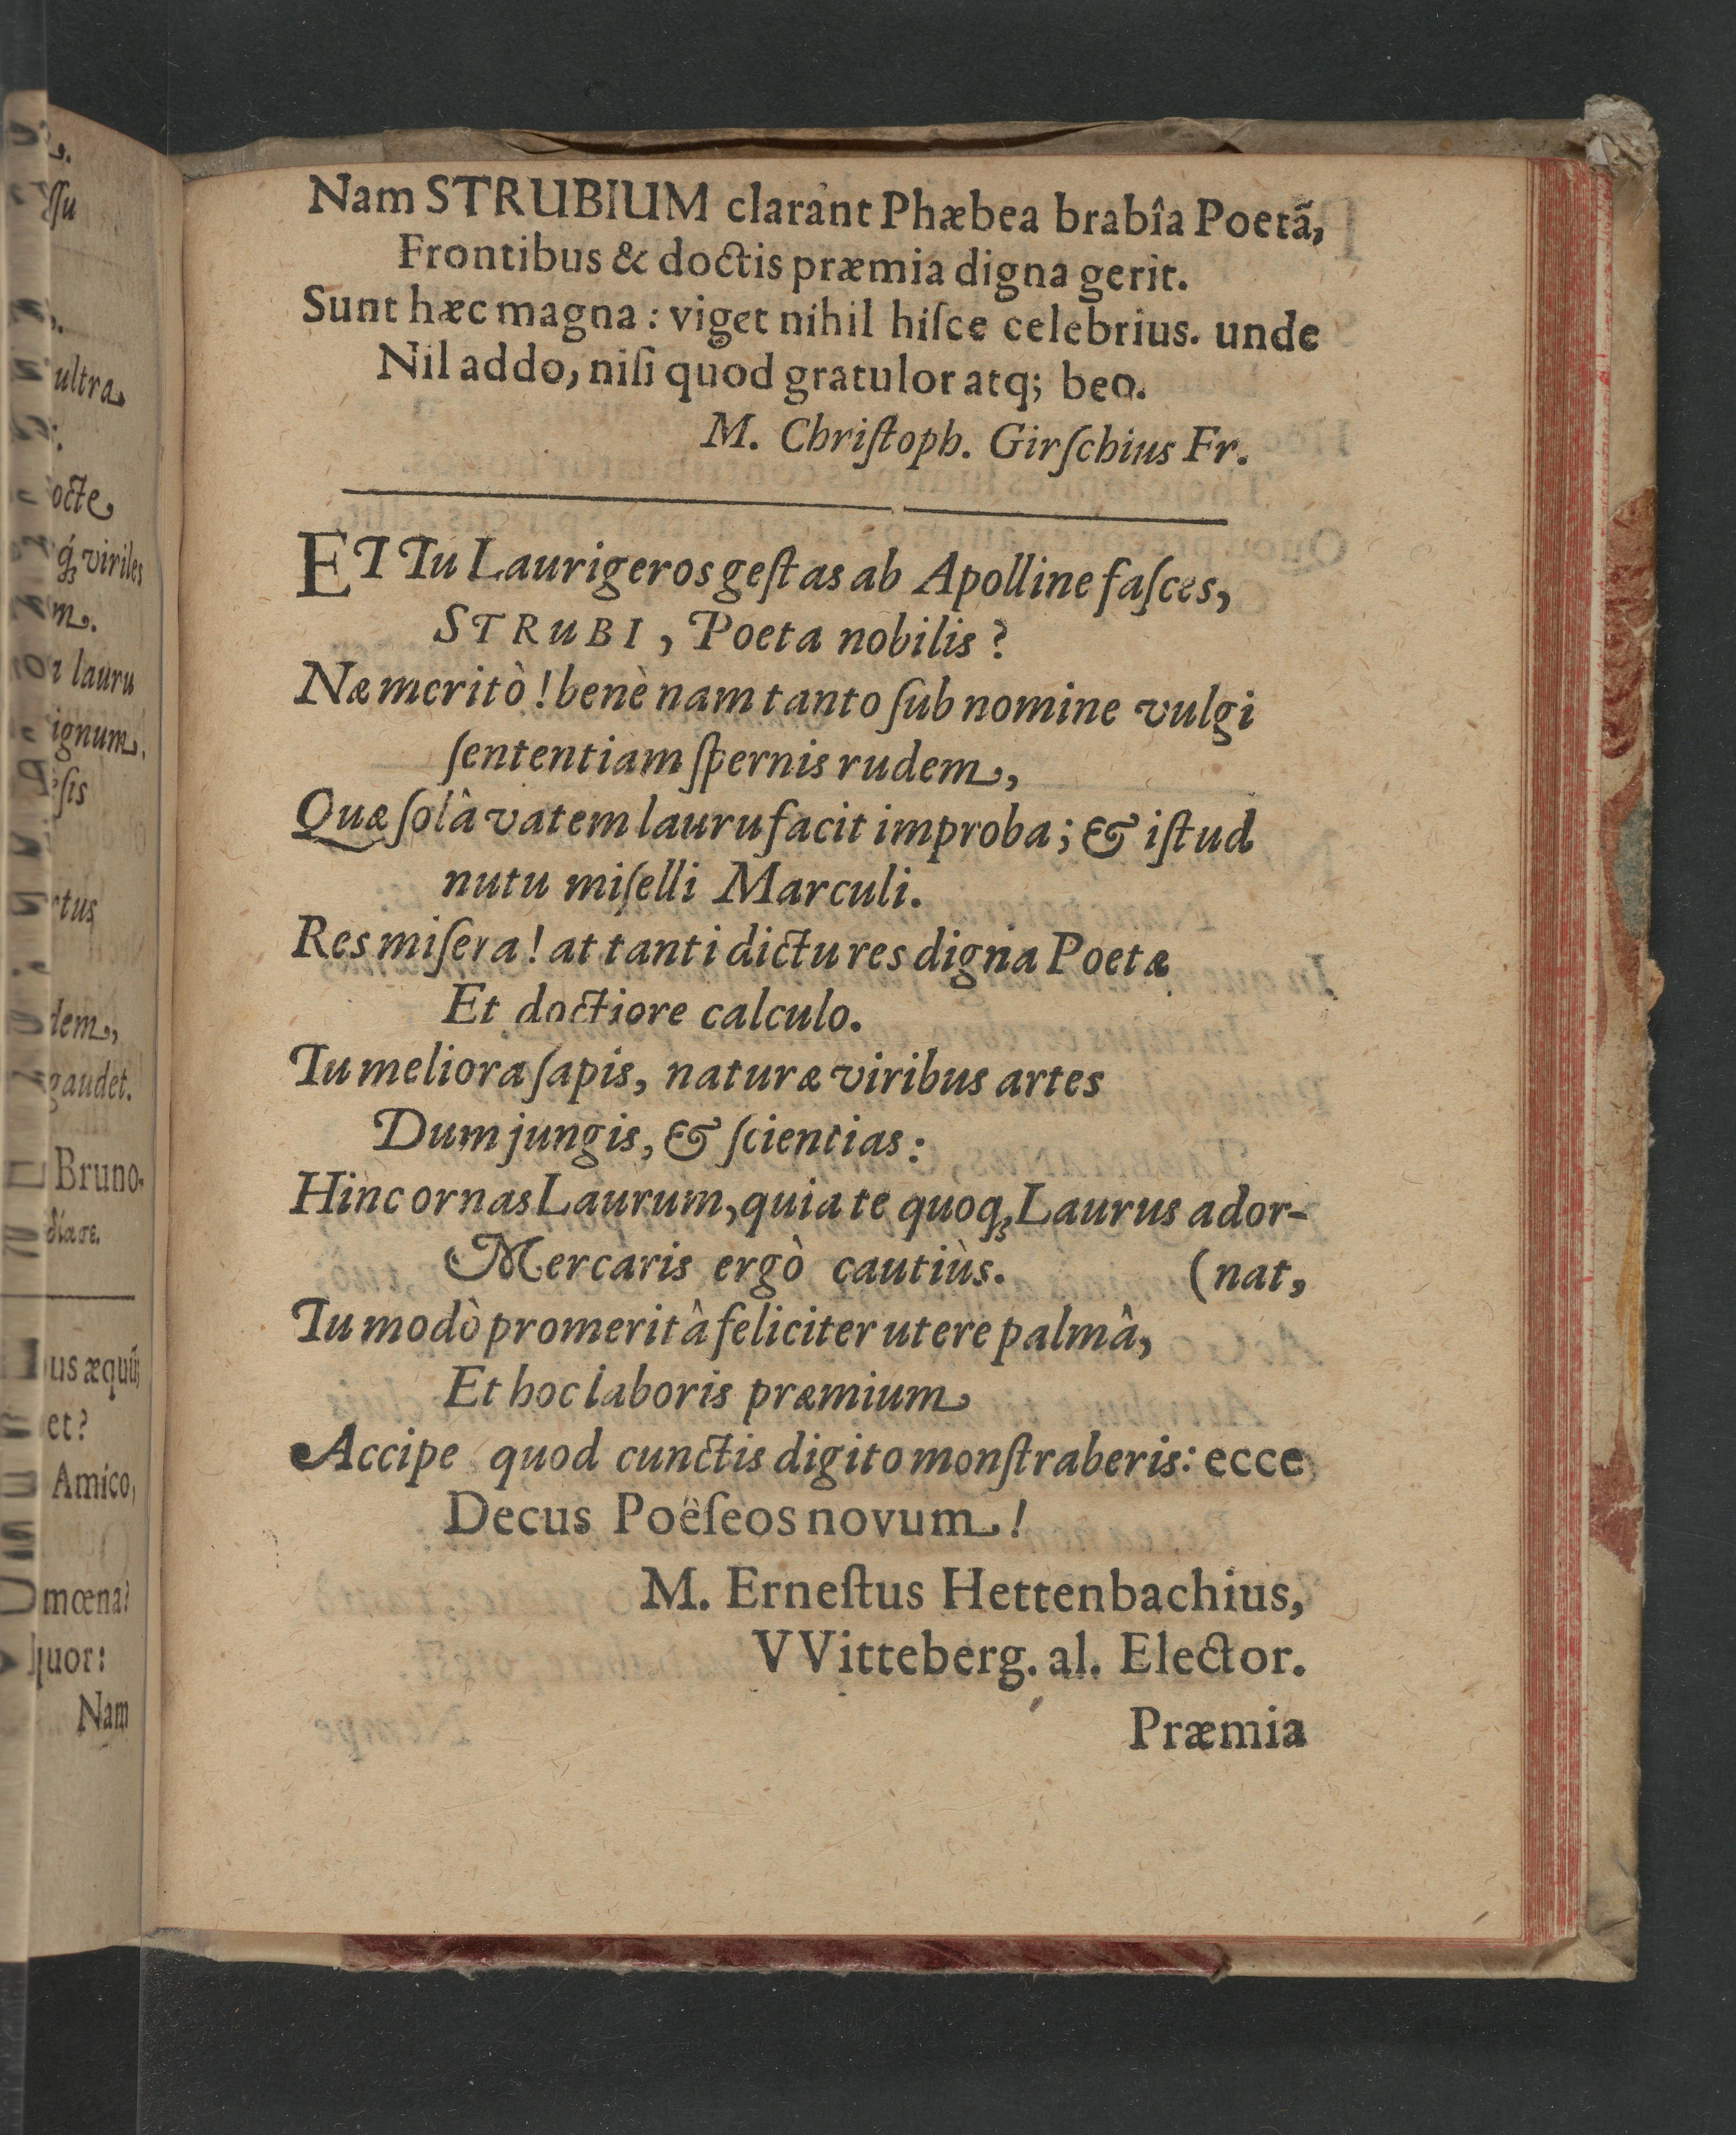 ſſu
ultra
octe
q́ꝫ viriles
m.
lauru
ignum.
ſis
rtus
dem,
gaudet.
Bruno-
us æquũ;
et?
Amico,
mœna?
quor:
Nam
Nam STRUBIUM clarant Phæbea brabîa Poetã,
Frontibus & doctis præmia digna gerit.
Sunt hæc magna: viget nihil hiſce celebrius. unde
Nil addo, niſi quod gratulor atq; beo.
M. Chriſtoph. Girſchius Fr.
ET Tu Laurigeros geſtas ab Apolline faſces,
STRUBI, Poeta nobilis?
Næ meritò! benè nam tanto ſub nomine vulgi
ſententiam ſpernis rudem,
Quæ ſolâ vatem lauru facit improba; & iſtud
nutu miſelli Marculi.
Res miſera! at tanti dictu res digna Poetæ
Et doctiore calculo.
Tu meliora ſapis, naturæ viribus artes
Dum jungis, & ſcientias:
Hinc ornas Laurum, quia te quoqꝫ Laurus ador-
Mercaris ergò cautiùs. (nat,
Tu modò promeritâ feliciter utere palmâ,
Et hoc laboris præmium
Accipe quod cunctis digito monſtraberis: ecce
Decus Poëſeos novum!
M. Erneſtus Hettenbachius,
VVitteberg. al. Elector.
Præmia